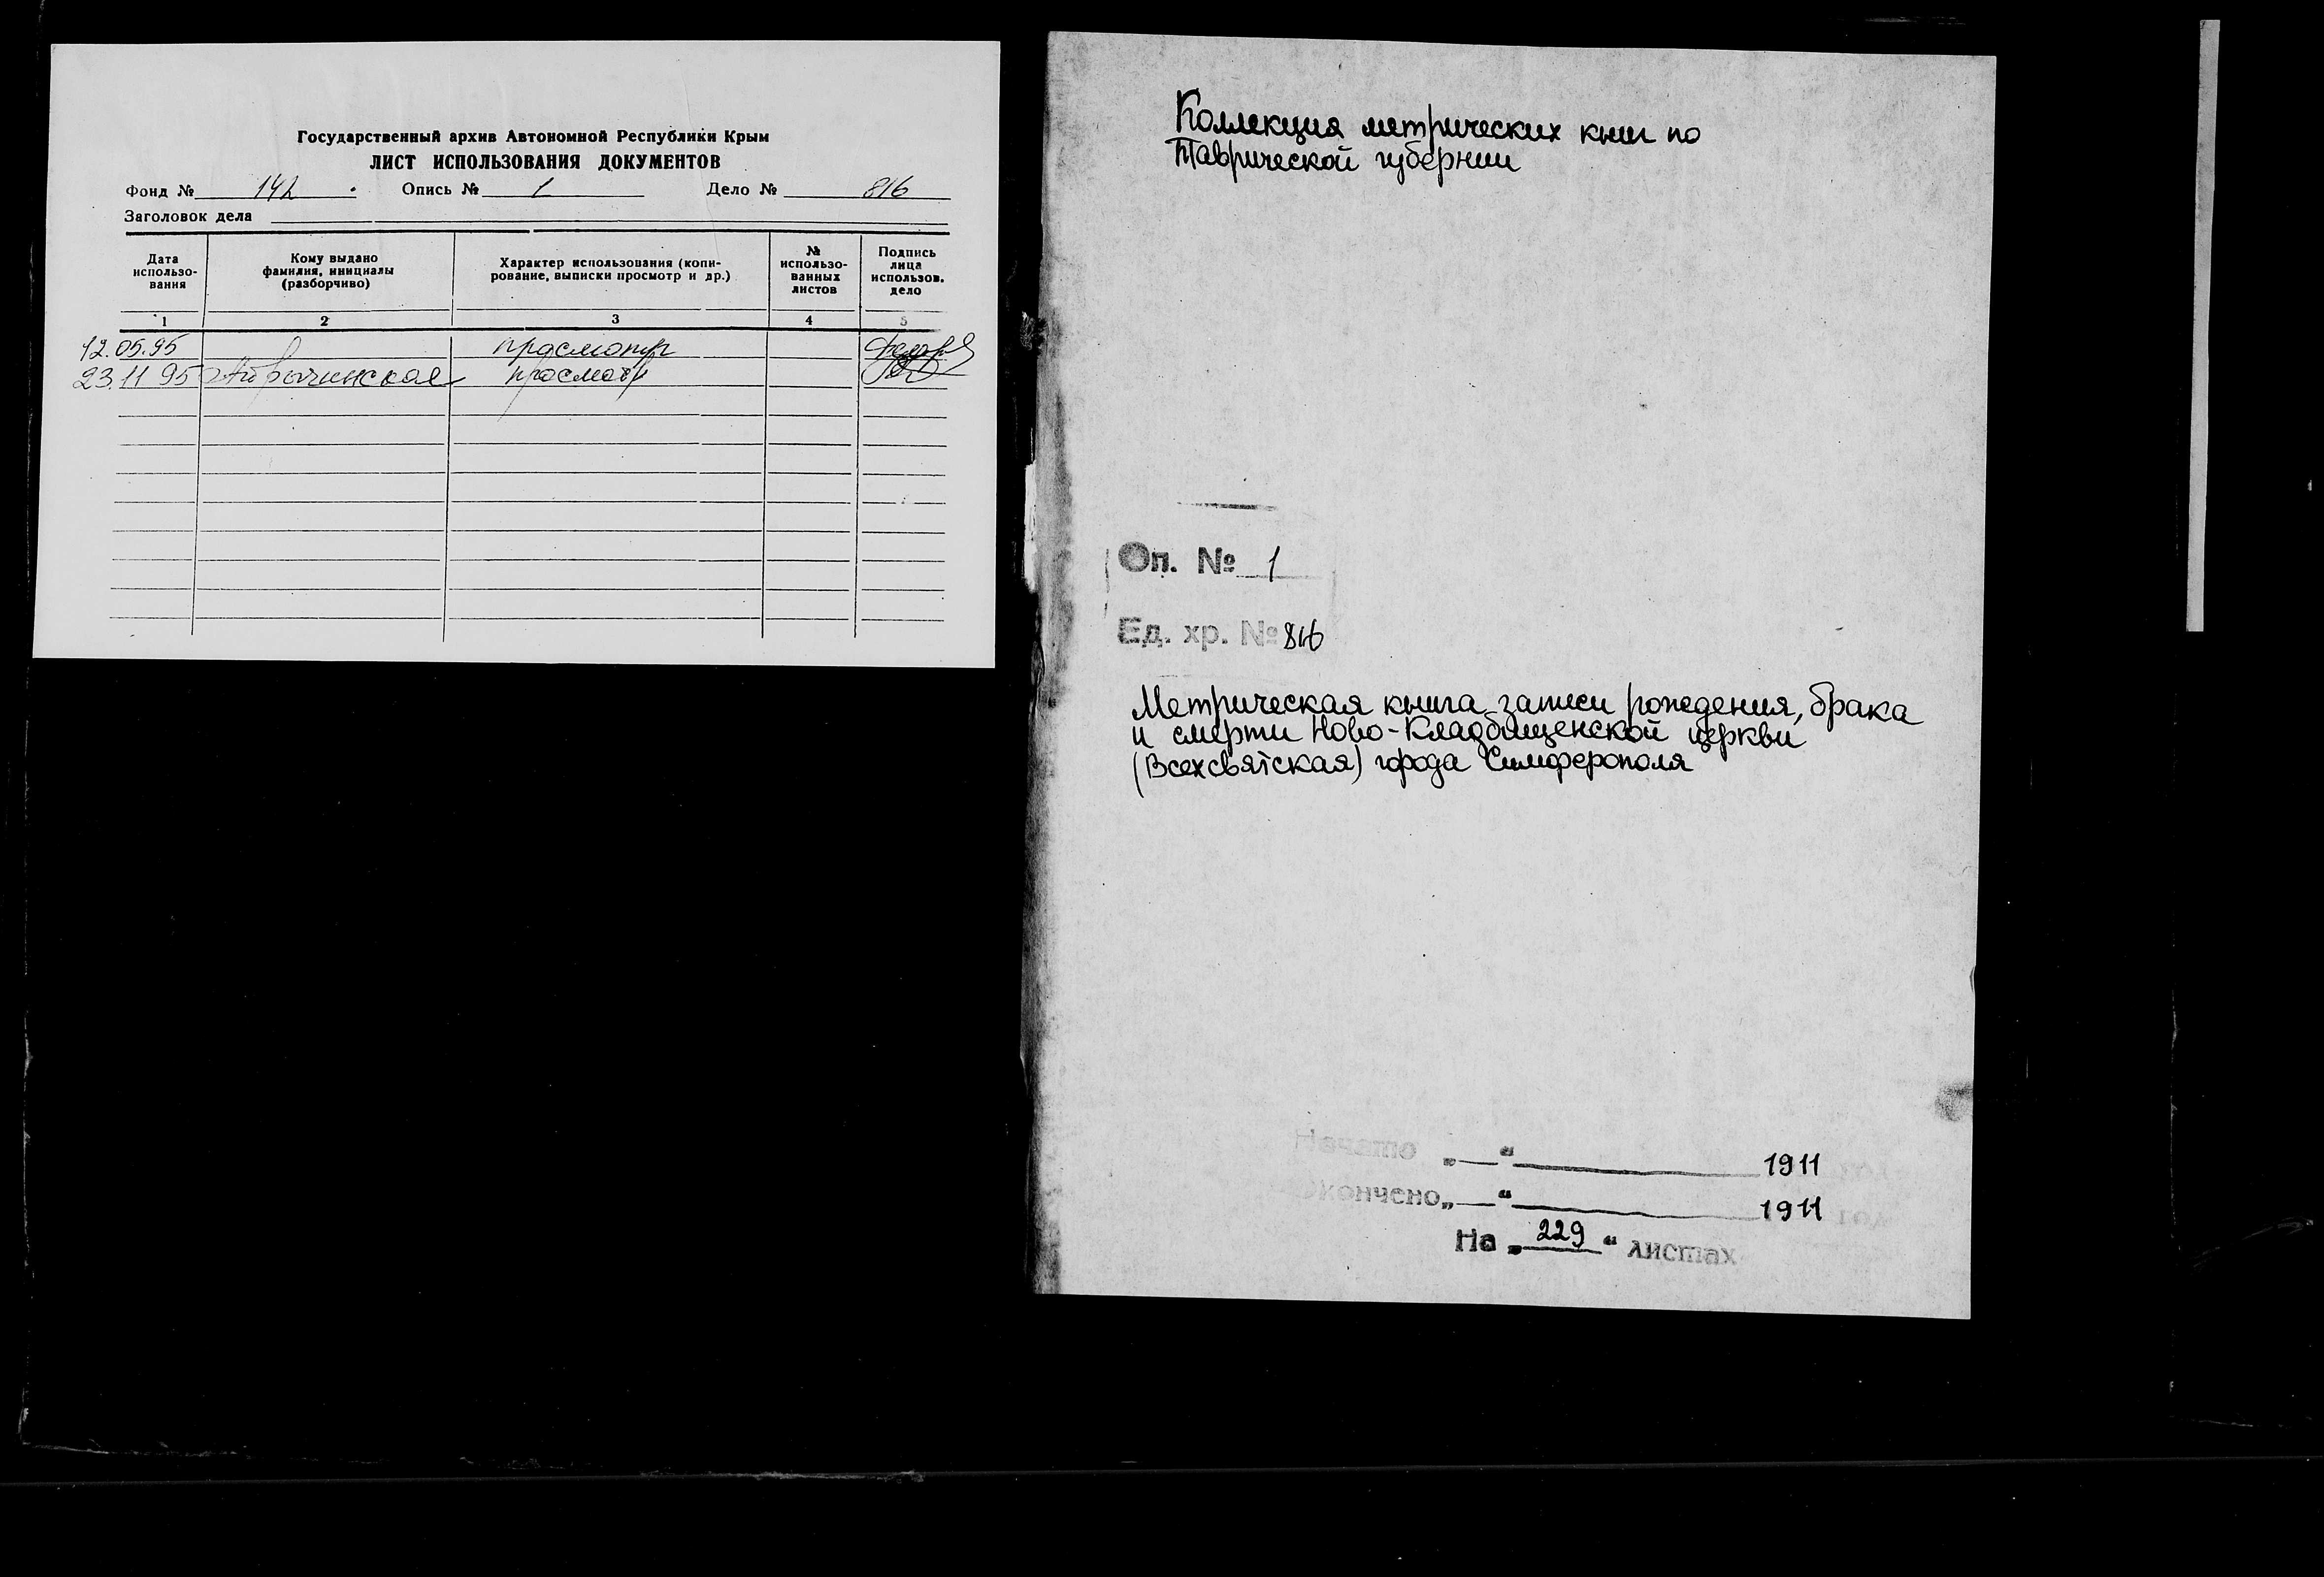 Государственный архив Автономной Республики Крым
ЛИСТ ИСПОЛЬЗОВАНИЯ ДОКУМЕНТОВ
Фонд № 142 Опись № 1 Дело № 816
Заголовок дела
Дата использо-вания
Кому выдано фамилия, инициалы (разборчиво)
Характер использования (копи-рование, выписки просмотр и др.)
№ использо-ванных листов
Подпись лица использов. дело
1 2 3 4 5
12.05.95 просмотр
23.11 95 просмотр
Коллекция метрических книг по
Таврической губернии
Оп. № 1
Ед. хр. № 816
Метрическая книга записи рождения, брака
и смерти Ново-Кладбищенской церкви
(Всехсвятская) города Симферополя
Начато „ “ 1911
Окончено „ “ 1911
На „229“ листах